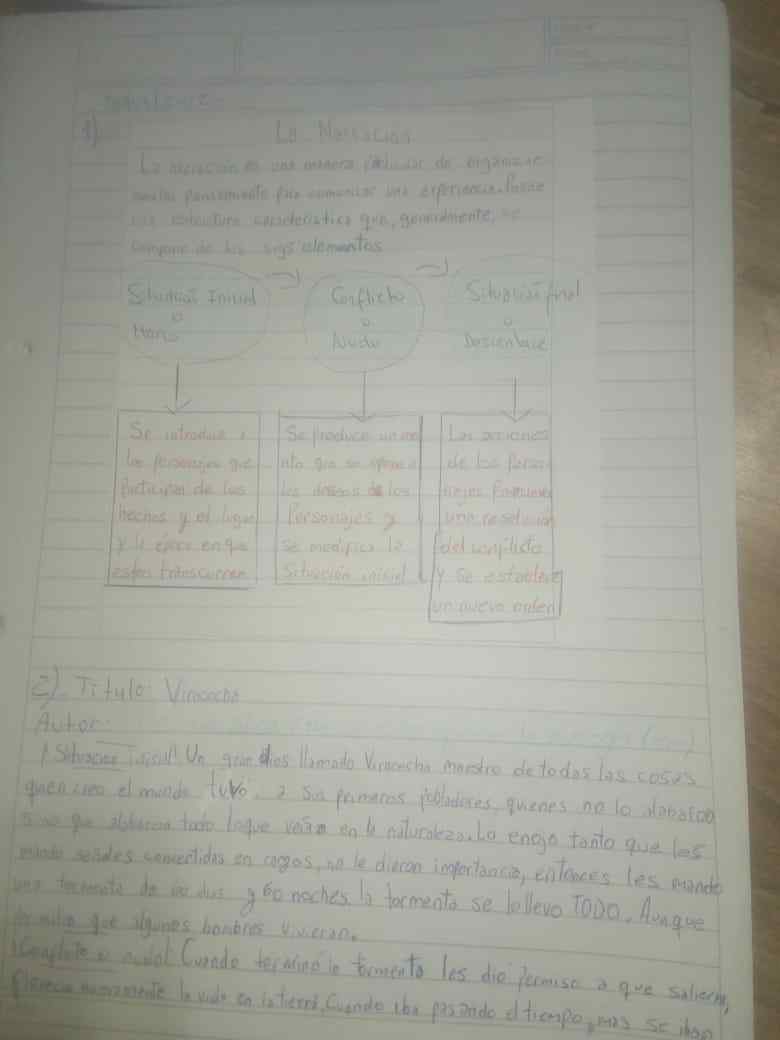 1)
La Narración
La narración es una manera particular de organizar
pensamiento para comunicar una experiencia. Posee
una estructura característica que, generalmente, se
compone de los sigs elementos
Situación Inicial
o
Marco
Conflicto
o
Nudo
Situación final
o
Desenlace
Se introduce a
los personajes que
participan de los
hechos y el lugar
y la época en que
estos transcurren
Se produce un eve
nto que se opone a
los deseos de los
Personajes y
se modifica la
Situación inicial
Las acciones
de los Perso
najes Promueven
una resolución
del conflicto
y se establece
un nuevo orden
2). Titulo: Viracocha
Autor:
Situacion Inicial Un gran dios llamado Viracocha maestro de todas las cosas
quien creo el mundo tuvo a sus primeros pobladores, quienes no lo alababan
sino que alababan todo lo que veian en la naturaleza. Lo enojo tanto que les
mando señales convertidas en, no le dieron importancia, entonces les mando
una tormenta de 60 dias y 60 noches la tormenta se lo llevo TODO. Aunque
que algunos hombres vivieran.
Conflicto o nudo Cuando termino la tormenta les dio permiso a que salieran,
florecia nuevamente la vida en la tierra, Cuando iba pasando el tiempo, mas se iban